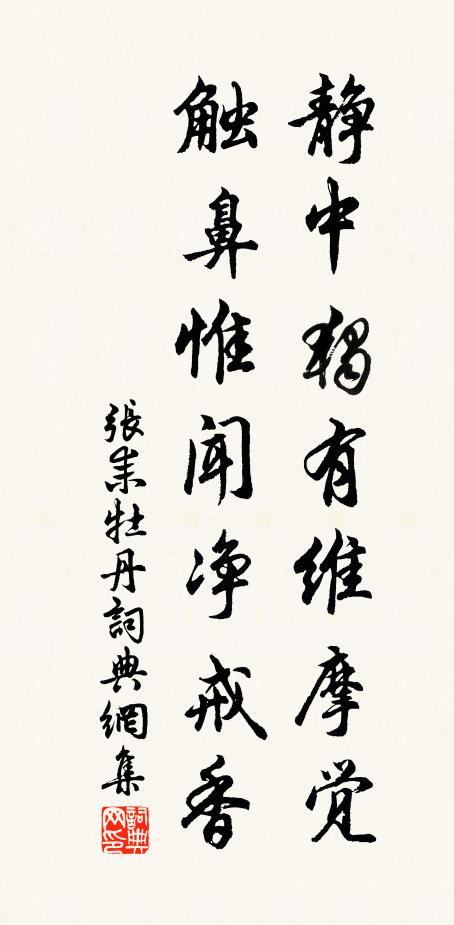 静中獨有維摩觉
触鼻惟闻净戒香
張耒牡丹詞典網集
詞典网印